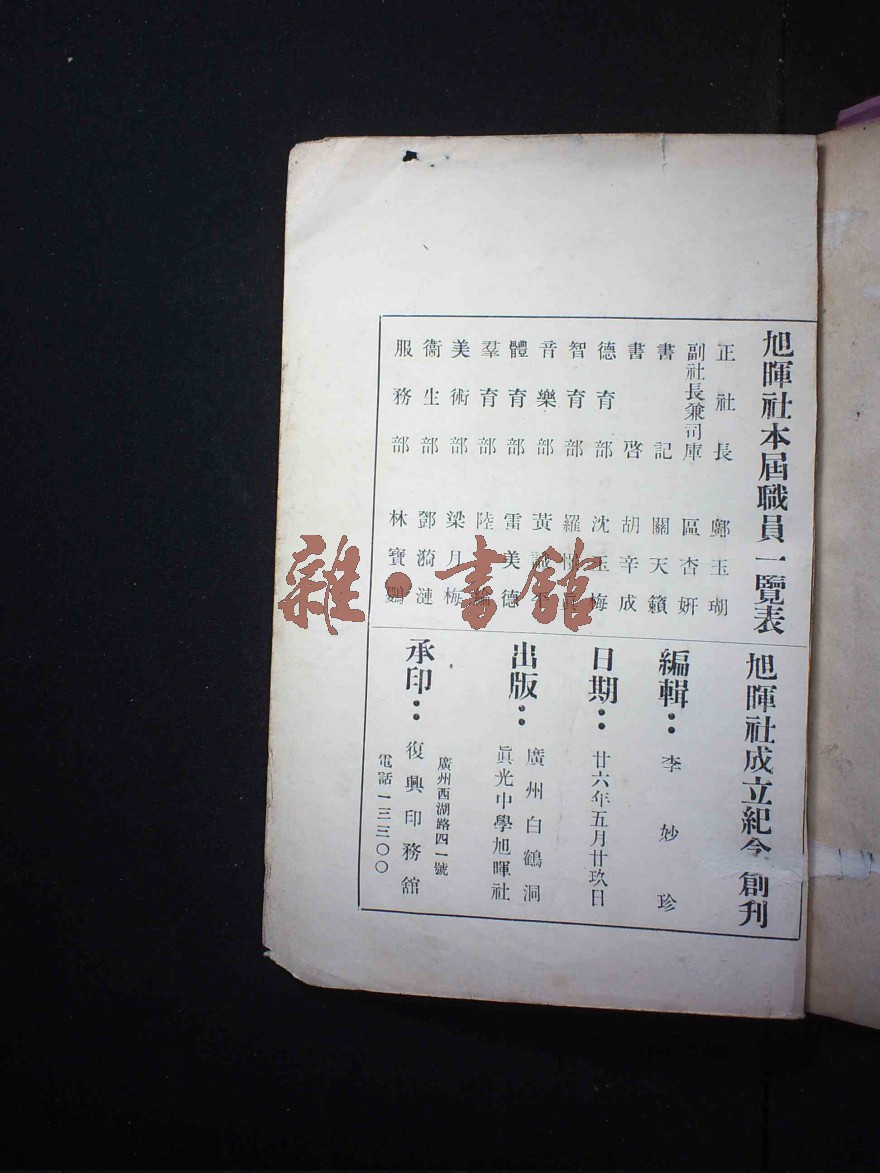 旭暉社本屆職員一覽表
正社長 鄺玉瑚
副社長兼司庫 區杏妍
書記 關天籟
書啓 胡辛成
德育部 沈玉梅
智育部 羅
音樂部 黃
體育部 雷美德
羣育部 陸
美術部 梁月梅
衞生部 鄧漪漣
服務部 林寶鸚
旭暉社成立紀念創刊
編輯：李妙珍
日期：廿六年五月廿玖日
出版：
廣州白鶴洞
眞光中學旭暉社
承印：
廣州西湖路四一號
復興印務舘
電話一三三〇〇
雜·書舘